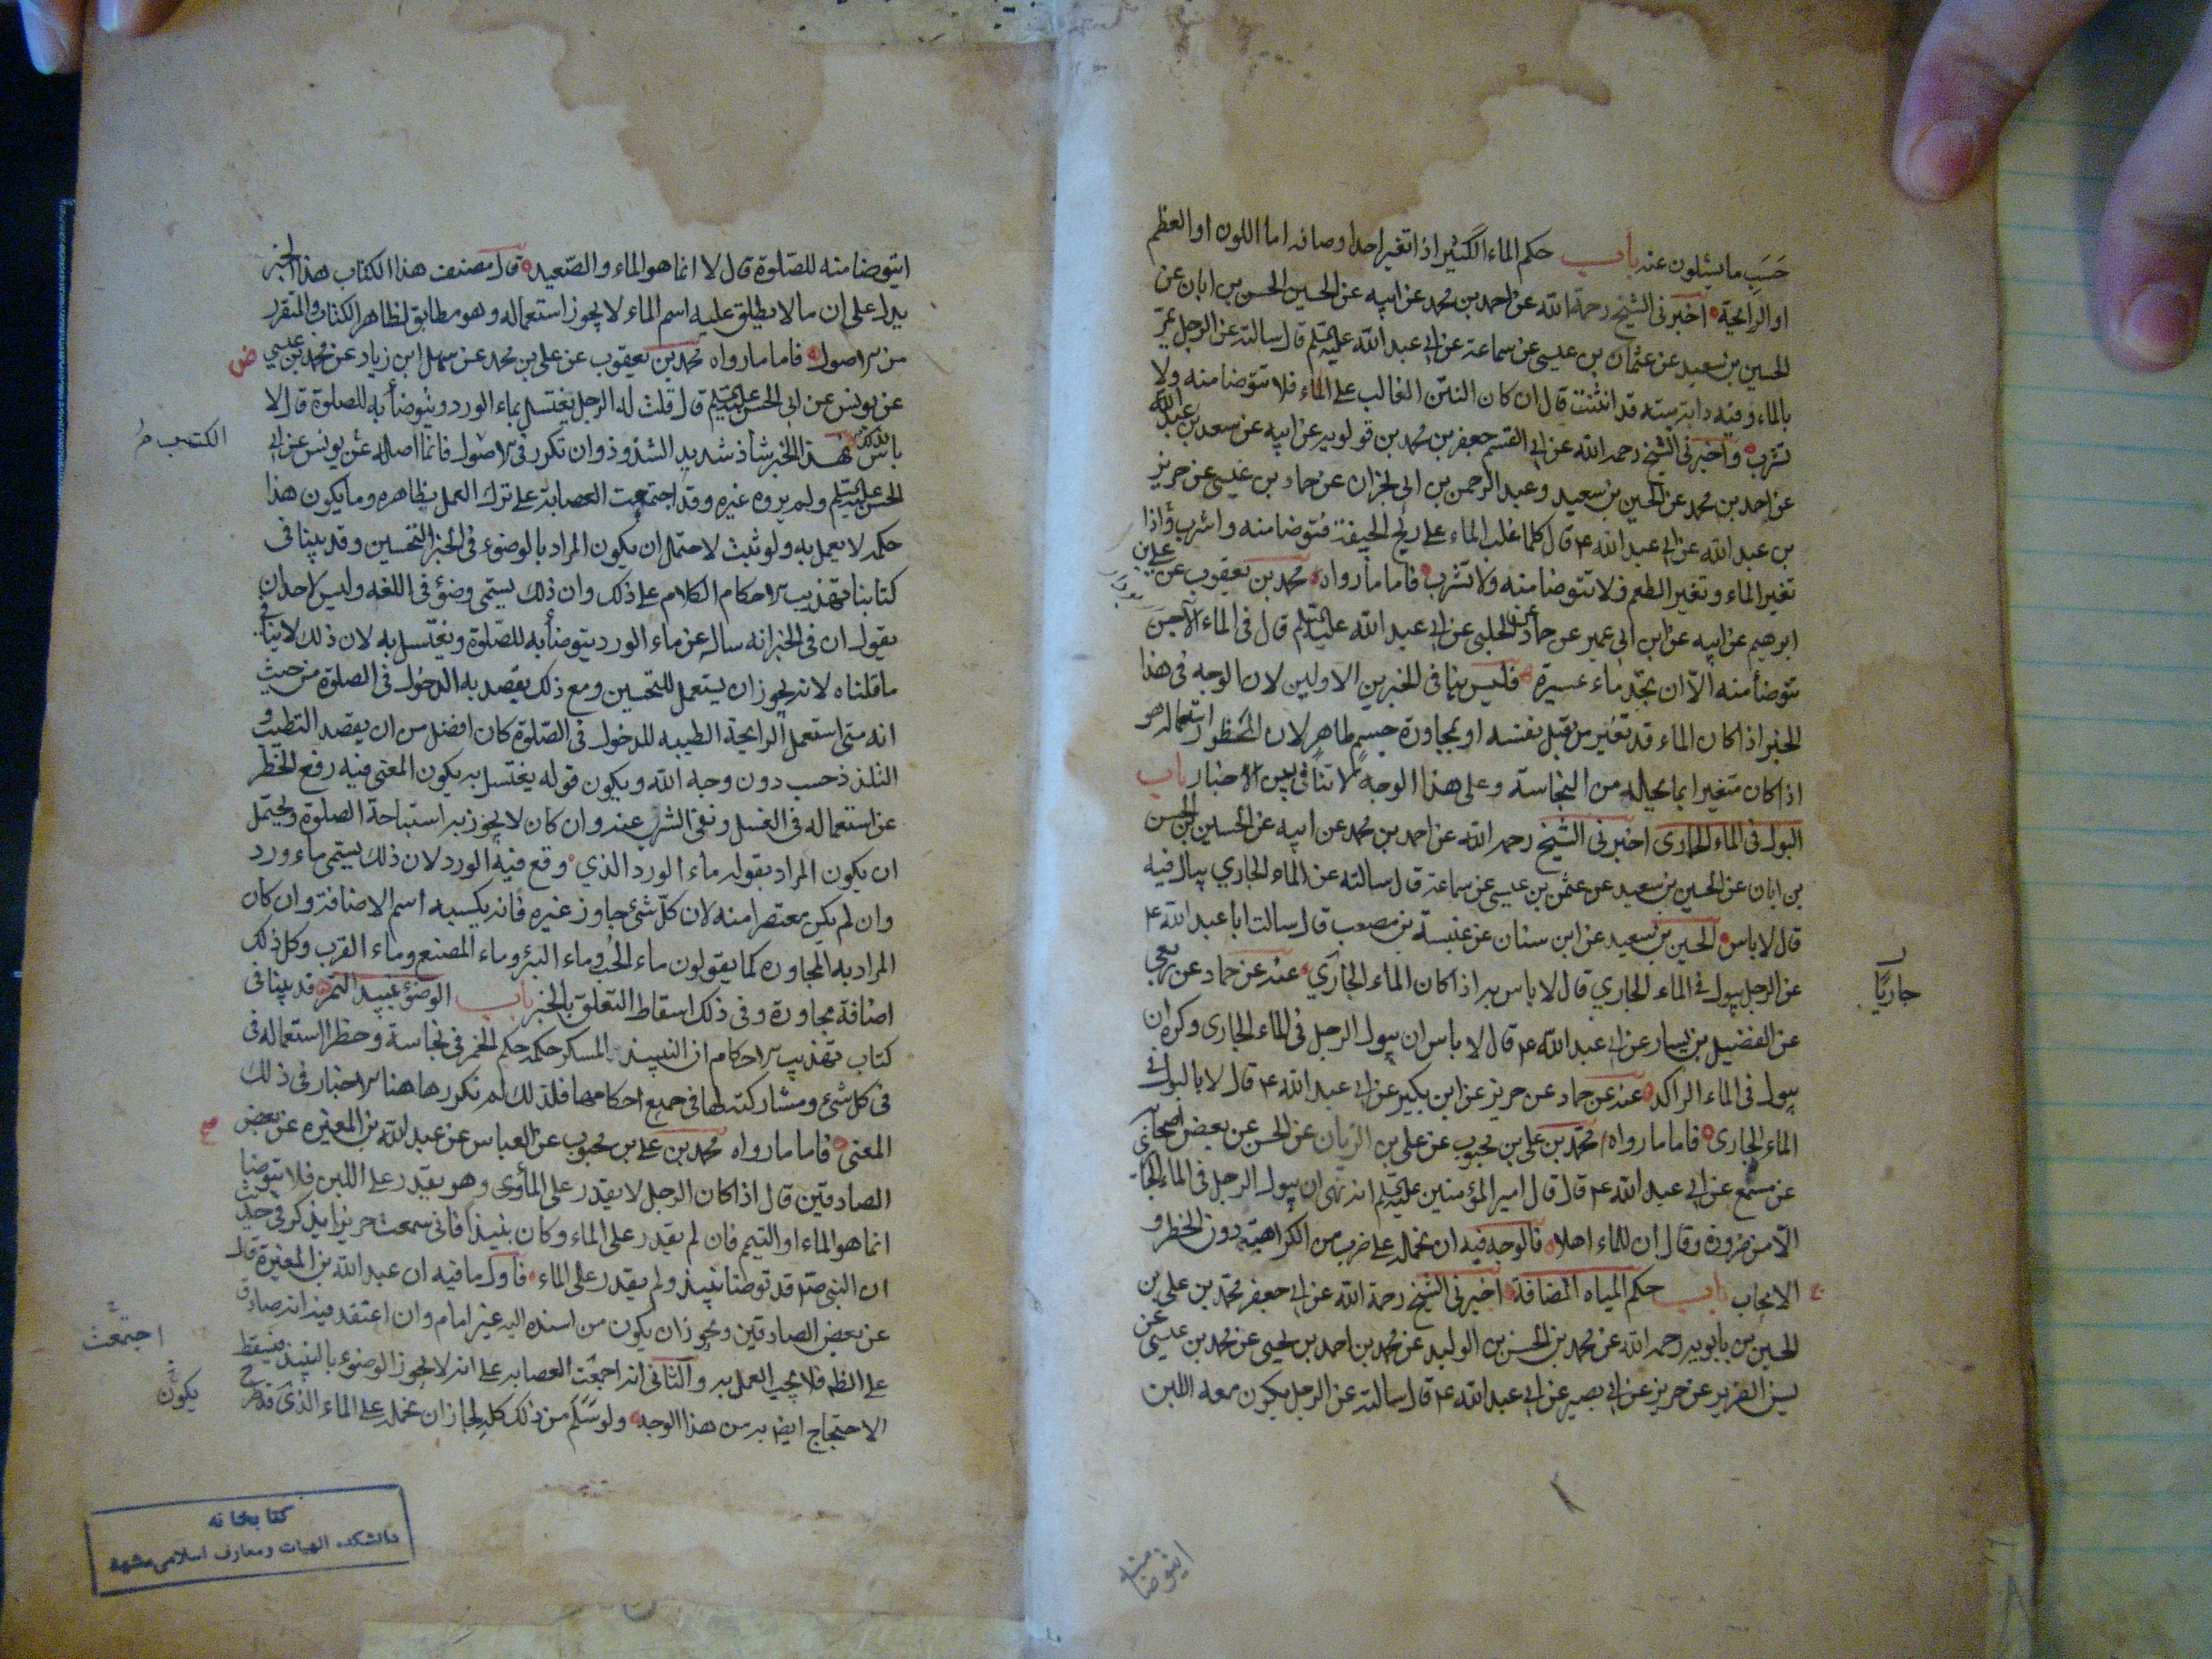 حَسَبِ ما يسئلون عنه باب حكم الماء الكثير اذا تغير احد اوصافه اما اللون او الطعم
او الرايحة اخبرنى الشيخ رحمة الله عن احمد بن محمد عن ابيه عن الحسين الحسن بن ابان عن
الحسين بن سعيد عن عثمان بن عيسى عن سماعة عن ابى عبد الله عليه السلم قال سالته عن الرجل يمر
بالماء وفيه دابة ميتة قد انتنت قال ان كان النتن الغالب على الماء فلا تتوضا منه ولا
تشرب واخبرنى الشيخ رحمه الله عن ابى القسم جعفر بن محمد بن قولويه عن ابيه عن سعد بن عبد الله
عن احمد بن محمد عن الحسين بن سعيد وعبد الرحمن بن ابى نجران عن حماد بن عيسى عن حريز
بن عبد الله عن ابى عبد الله ع قال كلما غلب الماء على ريح الجيفة فتوضا منه واشرب واذا
تغير الماء وتغير الطعم فلا تتوضا منه ولا تشرب فاما ما رواه محمد بن يعقوب عن على بن
ابرهيم عن ابيه عن ابن ابى عمير عن حماد عن الحلبى عن ابى عبد الله عليه السلم قال فى الماء الآجن
تتوضأ منه الّا ان تجد ماء غيره فليس ينافى الخبرين الاولين لان الوجه فى هذا
الخبر اذا كان الماء قد تغير من قبل نفسه او بمجاورة جسم طاهر لان المحظور استعماله هو
اذا كان متغيرا بما يحله من النجاسة وعلى هذا الوجه لا تنافى بين الاخبار باب
البول فى الماء الجارى اخبرنى الشيخ رحمه الله عن احمد بن محمد عن ابيه عن الحسين بن الحسن
بن ابان عن الحسين بن سعيد عن عثمن بن عيسى عن سماعة قال سالته عن الماء الجاري يبال فيه
قال لا باس الحسين بن سعيد عن ابن سنان عن عنبسة بن مصعب قال سالت ابا عبد الله ع
عن الرجل يبول فى الماء الجاري قال لا باس به اذا كان الماء الجاري عنه عن حماد عن ربعى
جاريًا
عن الفضيل بن يسار عن ابى عبد الله ع قال لا باس ان يبول الرجل فى الماء الجارى وكره ان
يبول فى الماء الراكد عنه عن حماد عن حريز عن ابن بكير عن ابى عبد الله ع قال لا باس بالبول فى
الماء الجارى فاما ما رواه محمد بن على بن محبوب عن على بن الريان عن الحسن عن بعض اصحابه
عن مسمع عن ابى عبد الله ع قال قال امير المؤمنين عليه السلم انه نهى ان يبول الرجل فى الماء الجارى
الّا من ضرورة وقال ان للماء اهلا فالوجه فيه ان نحمله على ضرب من الكراهية دون الحظر و
الايجاب باب حكم المياه المضافة اخبرنى الشيخ رحمة الله عن ابى جعفر محمد بن على بن
الحسين بن بابويه رحمه الله عن محمد بن الحسن بن الوليد عن محمد بن احمد بن يحيى عن محمد بن عيسى عن
يس الضرير عن حريز عن ابى بصير عن ابى عبد الله ع قال سالته عن الرجل يكون معه اللبن
ايتوضا منه
ايتوضا منه للصّلوة قال لا انما هو الماء والصّعيد قال مصنف هذا الكتاب هذا الخبر
يدل على ان ما لا يطلق عليه اسم الماء لا يجوز استعماله وهو مطابق لظاهر الكتاب والمتقرر
من الاصول فاما ما رواه محمد بن يعقوب عن على بن محمد عن سهل ابن زياد عن محمد بن عيسى
عن يونس عن ابى الحسن عليه السلم قال قلت له الرجل يغتسل بماء الورد ويتوضأ به للصلوة قال لا
باس بذلك فهذا الخبر شاذ شديد الشذوذ وان تكرر فى الاصول فانما اصله عن يونس عن ابى
الكتب
الحسن عليه السلم ولم يروه غيره وقد اجتمعت العصابة على ترك العمل بظاهره وما يكون هذا
حكمه لا يعمل به ولو ثبت لاحتمل ان يكون المراد بالوضوء فى الخبر التحسين وقد بينا فى
كتابنا تهذيب الاحكام الكلام على ذلك وان ذلك يسمى وضؤ فى اللغه وليس لاحد ان
يقول ان فى الخبر انه ساله عن ماء الورد يتوضأ به للصّلوة ويغتسل به لان ذلك لا ينافى
ما قلناه لانه يجوز ان يستعمل للتحسين ومع ذلك يقصد به الدخول فى الصلوة من حيث
انه متى استعمل الرايحة الطيبه للدخول فى الصّلوة كان افضل من ان يقصد التطيب و
التلذذ حسب دون وجه الله ويكون قوله يغتسل به يكون المعنى فيه رفع الحظر
عن استعماله فى الغسل ونفى الشرب عنه وان كان لا يجوز به استباحة الصلوة ويحتمل
ان يكون المراد بقوله ماء الورد الذي وقع فيه الورد لان ذلك يسمى ماء ورد
وان لم يكن معتصرا منه لان كلّ شئ جاوز غيره فانه يكسبه اسم الاضافة وان كان
المراد به المجاوره كما يقولون ماء الحُب وماء البئر وماء المصنع وماء القرب وكل ذلك
اضافة مجاورة وفى ذلك اسقاط التعلّق بالخبر باب الوضوء بنبيذ التمر قد بينا فى
كتاب تهذيب الاحكام ان النبيذ المسكر حكمه حكم الخمر فى نجاسة وحظر استعماله فى
فى كل شئ ومشاركته لها فى جميع احكامها فلذلك لم نكررها هنا الاخبار فى ذلك
المعنى فاما ما رواه محمد بن على بن محبوب عن العباس عن عبد الله بن المغيره عن بعض
الصادقين قال اذا كان الرجل لا يقدر على الماء وهو يقدر على اللبن فلا يتوضا
انما هو الماء او التيمم فان لم يقدر على الماء وكان نبيذا فانى سمعت حريزا يذكر فى حديث
ان النبى قد توضا بنبيذ ولم يقدر على الماء فاول ما فيه ان عبد الله بن المغيرة قال
عن بعض الصادقين ويجوز ان يكون من اسنده اليه غير امام وان اعتقد فيه انه صادق
على الظ فلا يجب العمل به والثانى انه اجمعت العصابه على انه لا يجوز الوضوء بالنبيذ فيسقط
اجتمعت
الاحتجاج ايضا به من هذا الوجه ولو سَلَم من ذلك كله لجاز ان نحمله على الماء الذى قد طرح
يكون
كتابخانه
دانشكده الهيات ومعارف اسلامى مشهد